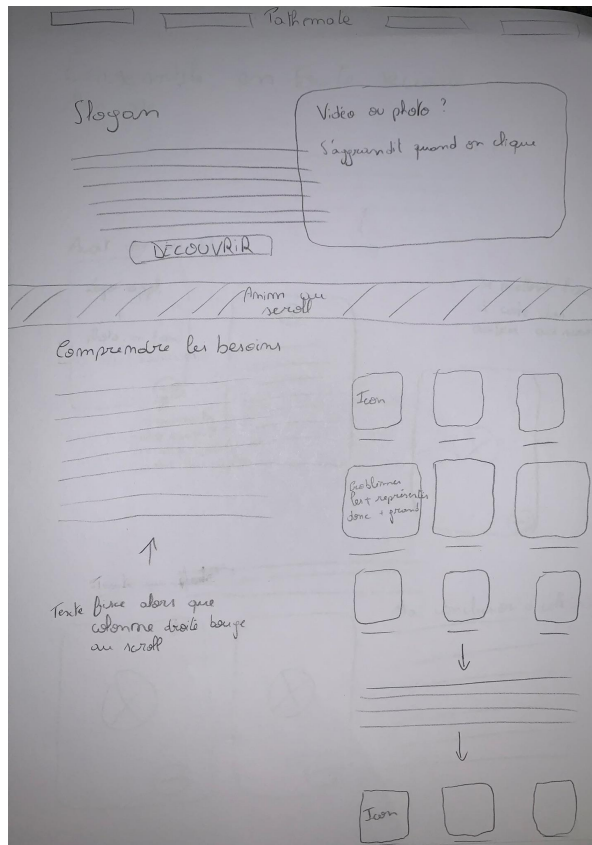 Pathmate
Slogan
Vidéo ou photo ?
S'aggrandit quand on clique
DECOUVRIR
Anim au
scroll
Comprendre les besoins
Icon
Problèmes
les + représentés
donc + grand
Texte fixe alors que
colonne droite bouge
au scroll
Icon